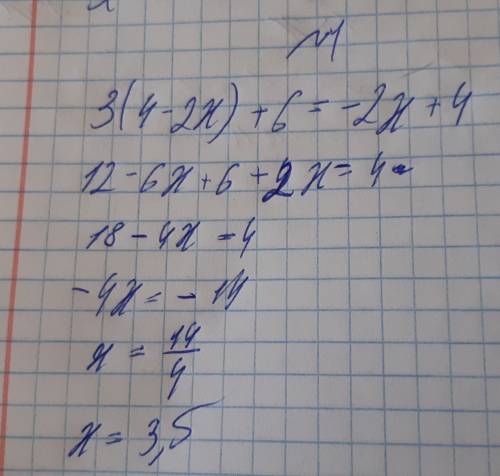 №1
3(4-2x)+6=-2x+4
12-6x+6+2x=4
18-4x=4
-4x=-14
x=14/4
x=3,5